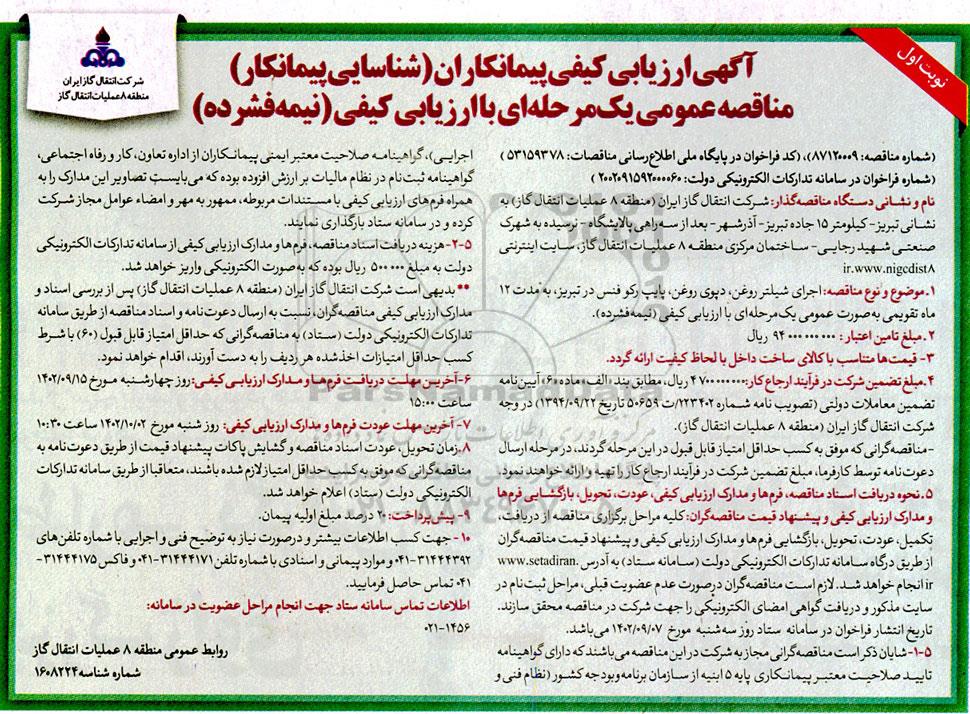 شرکت انتقال گاز ایران
منطقه ۸ عملیات انتقال گاز
نوبت اول
آگهی ارزیابی کیفی پیمانکاران (شناسایی پیمانکار)
مناقصه عمومی یک‌مرحله‌ای با ارزیابی کیفی (نیمه‌فشرده)
(شماره مناقصه: ۸۷۱۲۰۰۰۹)، (کد فراخوان در پایگاه ملی اطلاع‌رسانی مناقصات: ۵۳۱۵۹۳۷۸ )
(شماره فراخوان در سامانه تدارکات الکترونیکی دولت: ۲۰۰۲۰۹۱۵۹۲۰۰۰۰۶۰ )
نام و نشانی دستگاه مناقصه‌گذار: شرکت انتقال گاز ایران (منطقه ۸ عملیات انتقال گاز) به
نشانی تبریز- کیلومتر ۱۵ جاده تبریز- آذرشهر- بعد از سه‌راهی پالایشگاه - نرسیده به شهرک
صنعتی شهید رجایی- ساختمان مرکزی منطقه ۸ عملیات انتقال گاز، سایت اینترنتی
ir.www.nigcdist۸
۱.موضوع و نوع مناقصه: اجرای شیلتر روغن، دپوی روغن، پایپ رکو فنس در تبریز، به مدت ۱۲
ماه تقویمی به‌صورت عمومی یک‌مرحله‌ای با ارزیابی کیفی (نیمه‌فشرده).
۲.مبلغ تامین اعتبار : ۹۴۰۰۰۰۰۰۰۰۰ ریال
۳- قیمت‌ها متناسب با کالای ساخت داخل با لحاظ کیفیت ارائه گردد.
۴.مبلغ تضمین شرکت در فرآیند ارجاع کار: ۴۷۰۰۰۰۰۰۰۰ ریال، مطابق بند «الف» ماده «۶» آیین‌نامه
تضمین معاملات دولتی (تصویب نامه شماره ۱۲۳۴۰۲/ت ۵۰۶۵۹ تاریخ ۱۳۹۴/۰۹/۲۲) در وجه
شرکت انتقال گاز ایران (منطقه ۸ عملیات انتقال گاز).
-مناقصه‌گرانی که موفق به کسب حداقل امتیاز قابل قبول در این مرحله گردند، در مرحله ارسال
دعوت‌نامه توسط کارفرما، مبلغ تضمین شرکت در فرآیند ارجاع کار را تهیه و ارائه خواهند نمود.
۵.نحوه دریافت اسناد مناقصه، فرم‌ها و مدارک ارزیابی کیفی، عودت، تحویل، بازگشایی فرم‌ها
و مدارک ارزیابی کیفی و پیشنهاد قیمت مناقصه‌گران: کلیه مراحل برگزاری مناقصه از دریافت،
تکمیل، عودت، تحویل، بازگشایی فرم‌ها و مدارک ارزیابی کیفی و پیشنهاد قیمت مناقصه‌گران
از طریق درگاه سامانه تدارکات الکترونیکی دولت (سامانه ستاد) به آدرس www.setadiran.
ir انجام خواهد شد. لازم است مناقصه‌گران درصورت عدم عضویت قبلی، مراحل ثبت‌نام در
سایت مذکور و دریافت گواهی امضای الکترونیکی را جهت شرکت در مناقصه محقق سازند.
تاریخ انتشار فراخوان در سامانه ستاد روز سه‌شنبه مورخ ۱۴۰۲/۰۹/۰۷ می‌باشد.
۵-۱-شایان ذکر است مناقصه‌گرانی مجاز به شرکت در این مناقصه می‌باشند که دارای گواهینامه
تایید صلاحیت معتبر پیمانکاری پایه ۵ ابنیه از سازمان برنامه و بودجه کشور (نظام فنی و
اجرایی)، گواهینامه صلاحیت معتبر ایمنی پیمانکاران از اداره تعاون، کار و رفاه اجتماعی،
گواهینامه ثبت‌نام در نظام مالیات بر ارزش افزوده بوده که می‌بایست تصاویر این مدارک را به
همراه فرم‌های ارزیابی کیفی با مستندات مربوطه، ممهور به مهر و امضاء عوامل مجاز شرکت
کرده و در سامانه ستاد بارگذاری نمایند.
۵-۲-هزینه دریافت اسناد مناقصه، فرم‌ها و مدارک ارزیابی کیفی از سامانه تدارکات الکترونیکی
دولت به مبلغ ۵۰۰ ۰۰۰ ریال بوده که به‌صورت الکترونیکی واریز خواهد شد.
**بدیهی است شرکت انتقال گاز ایران (منطقه ۸ عملیات انتقال گاز) پس از بررسی اسناد و
مدارک ارزیابی کیفی مناقصه‌گران، نسبت به ارسال دعوت‌نامه و اسناد مناقصه از طریق سامانه
تدارکات الکترونیکی دولت (ستاد) به مناقصه‌گرانی که حداقل امتیاز قابل قبول (۶۰) با شرط
کسب حداقل امتیازات اخذ شده هر ردیف را به دست آورند، اقدام خواهد نمود.
۶-آخرین مهلت دریافت فرم‌ها و مدارک ارزیابی کیفی: روز چهارشنبه مورخ ۱۴۰۲/۰۹/۱۵
ساعت ۱۵:۰۰
۷- آخرین مهلت عودت فرم‌ها و مدارک ارزیابی کیفی: روز شنبه مورخ ۱۴۰۲/۱۰/۰۲ ساعت ۱۰:۳۰
۸.زمان تحویل، عودت اسناد مناقصه و گشایش پاکات پیشنهاد قیمت از طریق دعوت‌نامه به
مناقصه‌گرانی که موفق به کسب حداقل امتیاز لازم شده باشند، متعاقبا از طریق سامانه تدارکات
الکترونیکی دولت (ستاد) اعلام خواهد شد.
۹- پیش‌پرداخت: ۲۰ درصد مبلغ اولیه پیمان.
۱۰- جهت کسب اطلاعات بیشتر و درصورت نیاز به توضیح فنی و اجرایی با شماره تلفن‌های
۳۱۴۴۴۳۹۲-۰۴۱ و موارد پیمانی و اسنادی با شماره تلفن ۳۱۴۴۴۱۷۱-۰۴۱ و فاکس ۳۱۴۴۴۱۷۵-
۰۴۱ تماس حاصل فرمایید.
اطلاعات تماس سامانه ستاد جهت انجام مراحل عضویت در سامانه:
۰۲۱-۱۴۵۶
روابط عمومی منطقه ۸ عملیات انتقال گاز
شماره شناسه ۱۶۰۸۲۲۴